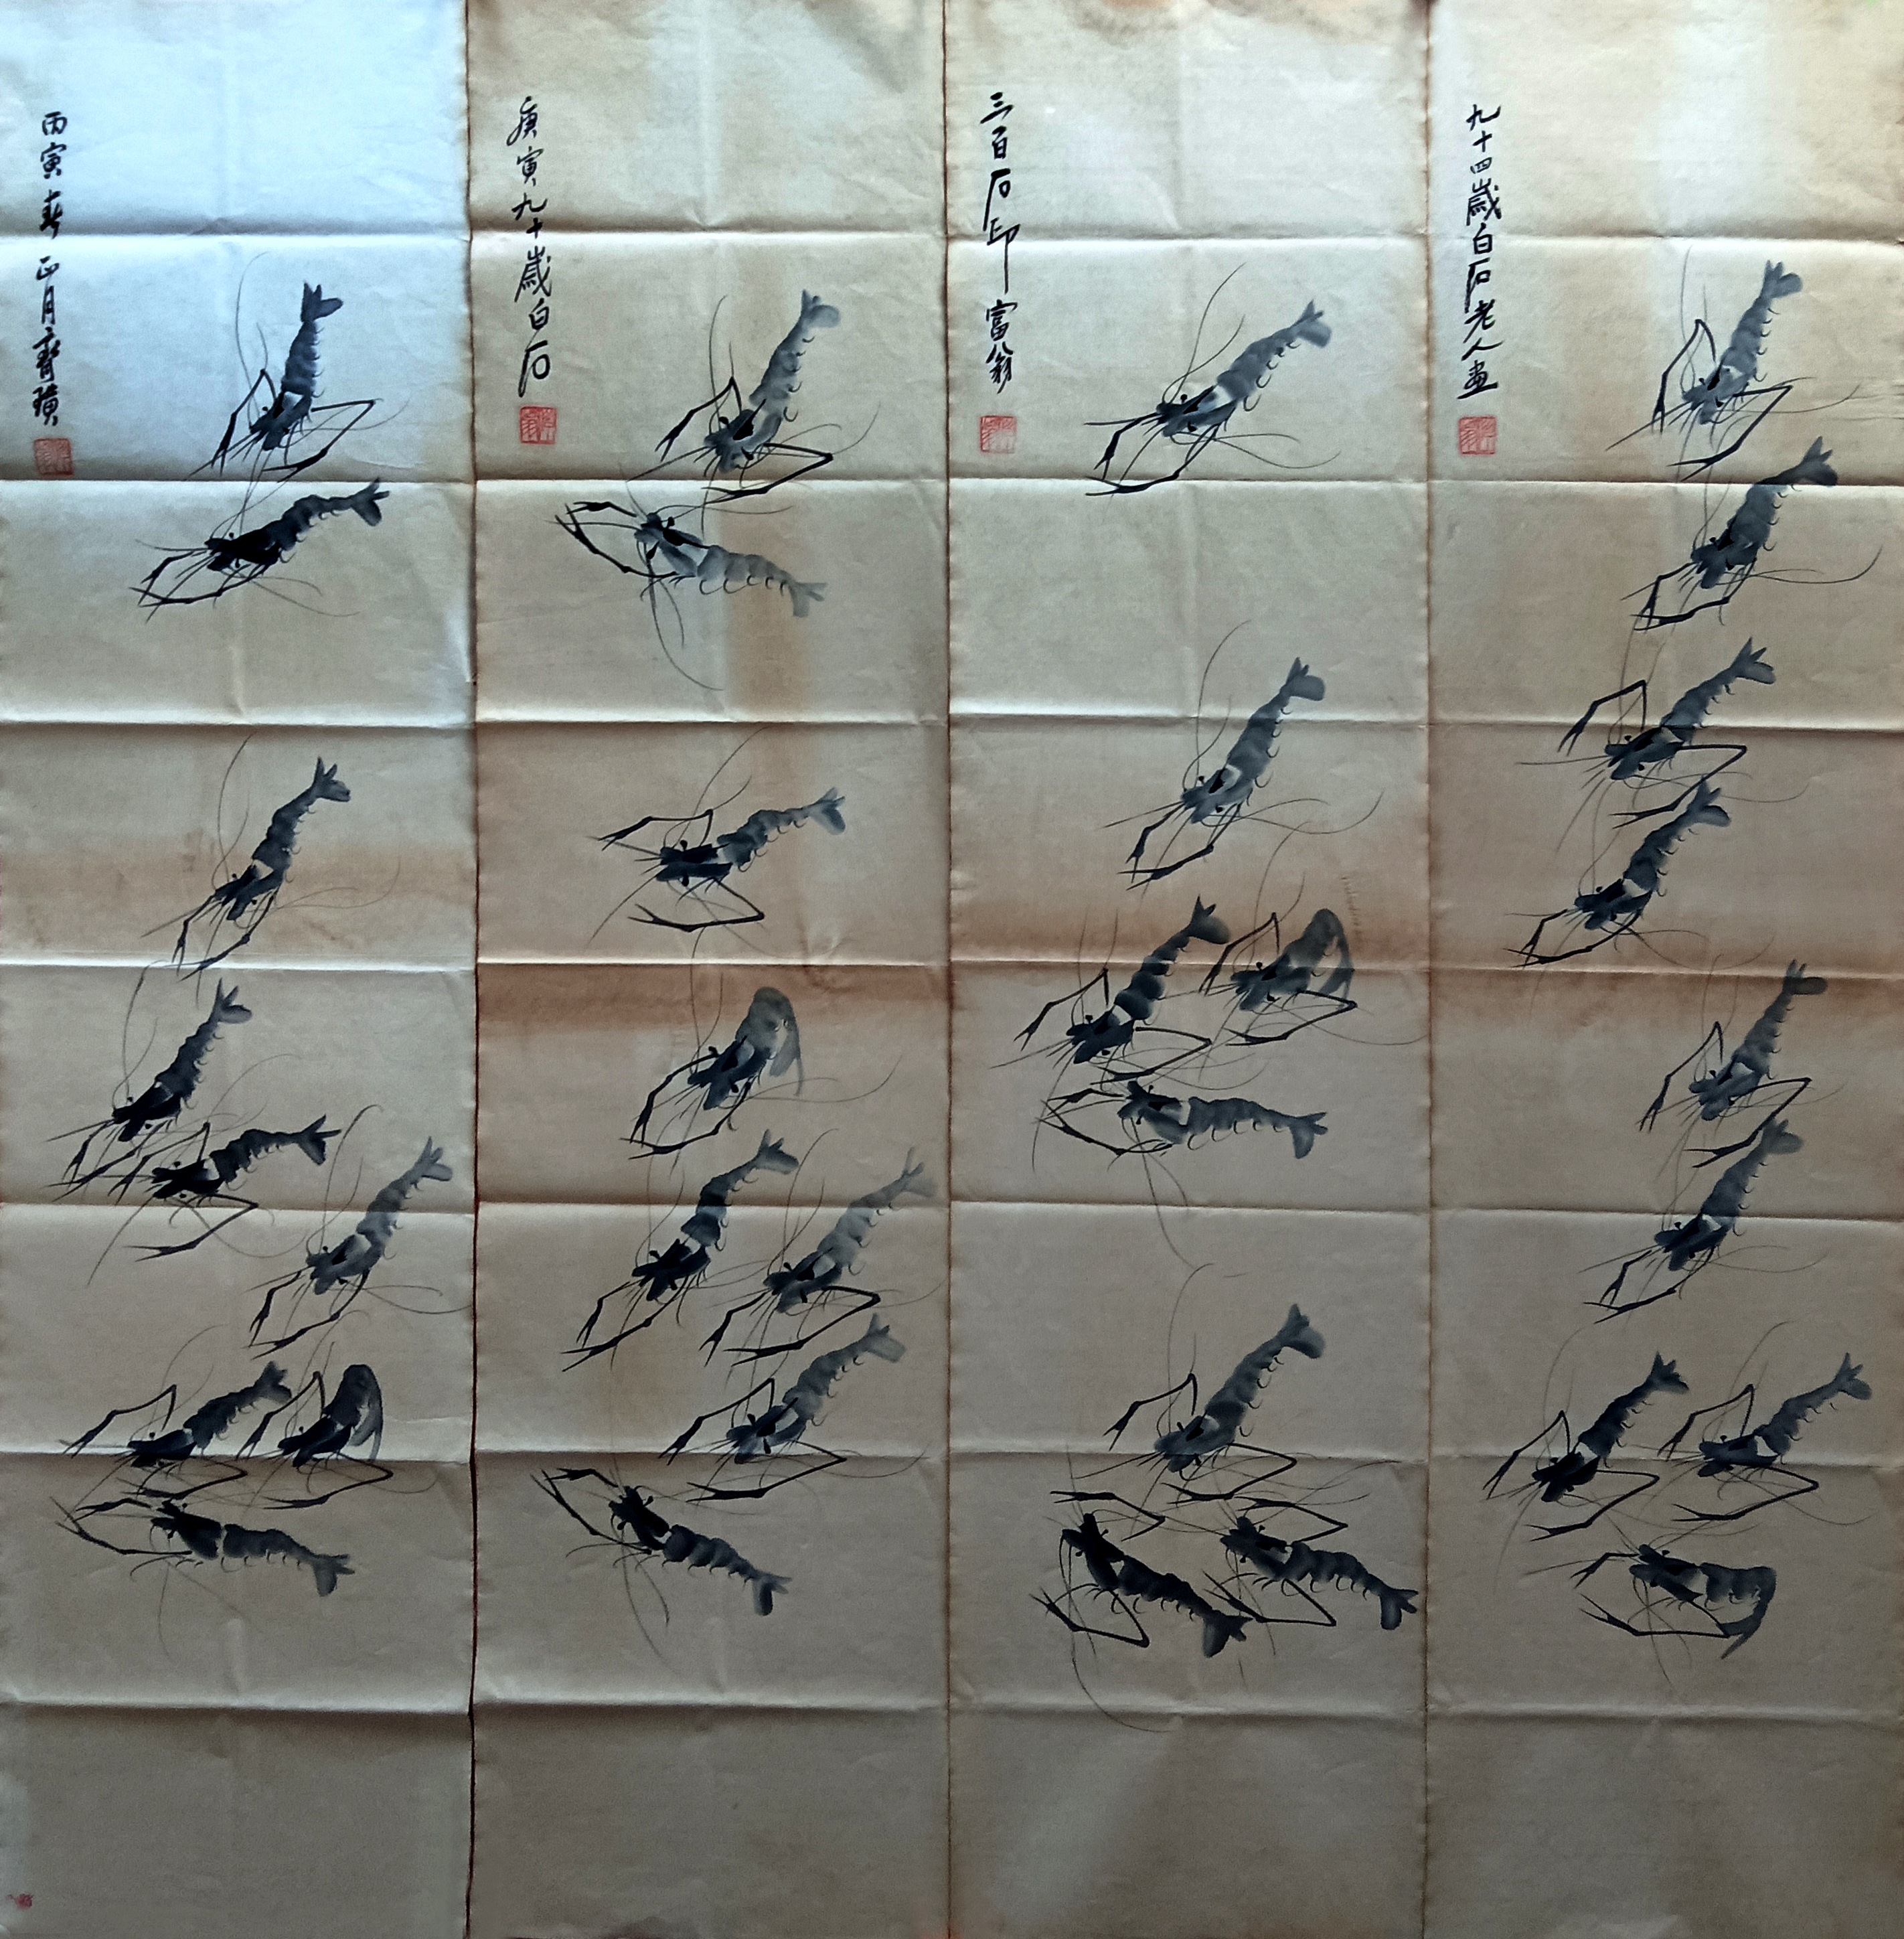 九十四歲白石老人畫
三百石印富翁
庚寅九十歲白石
丙寅春正月齊璜